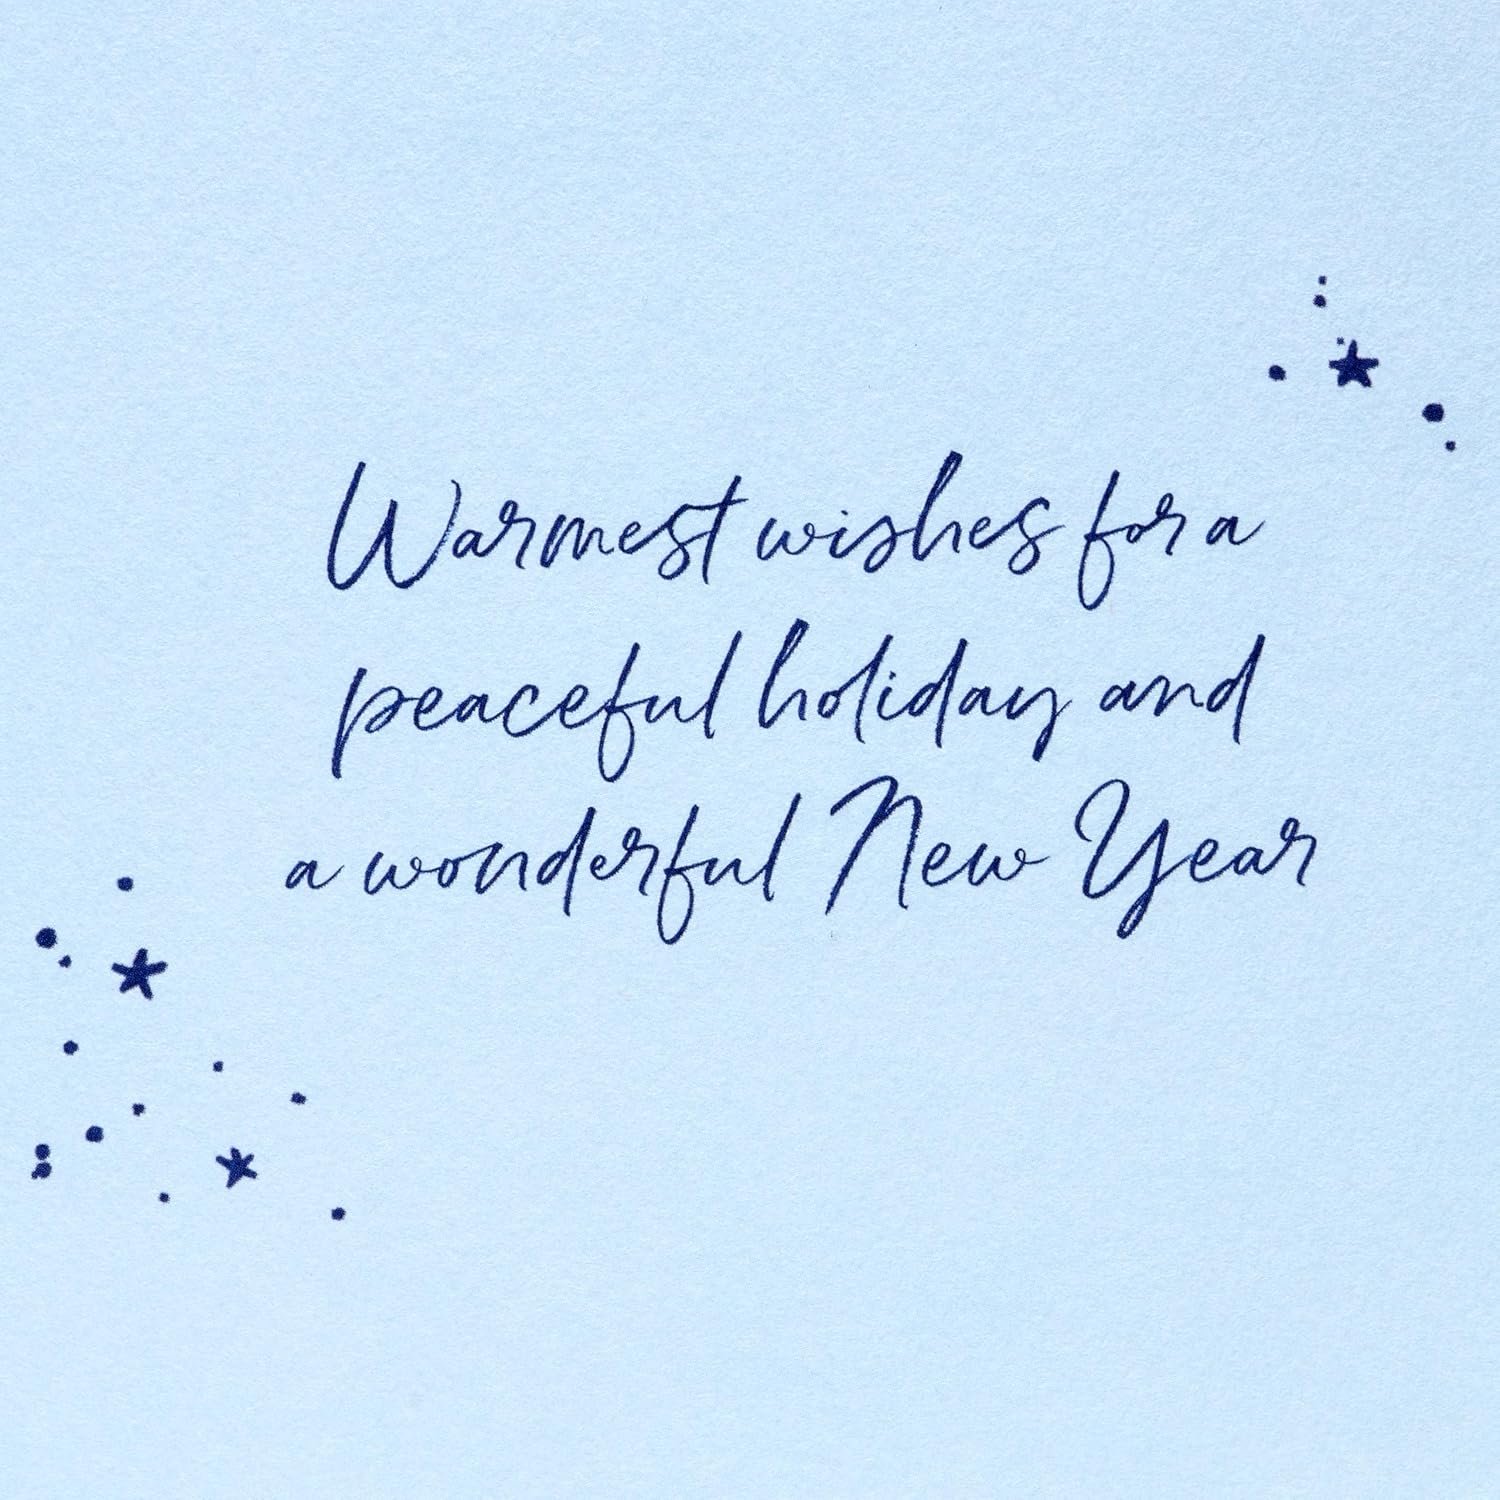 Warmest wishes for a
peaceful holiday and
a wonderful New Year